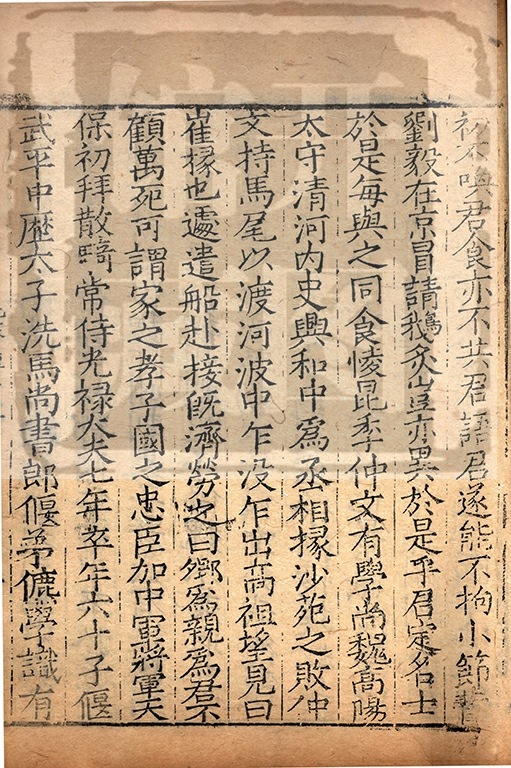 初不喚君食亦不共君語君遂能不拘小節昔
劉毅在京冒請鵝炙豈亦異於是乎君定名士
於是每與之同食㥄昆季仲文有學尚魏高陽
太守清河內史興和中為丞相掾沙苑之敗仲
文持馬尾以渡河波中乍没乍出高祖望見曰
崔掾也遽遣船赴接既濟勞之曰卿為親為君不
顧萬死可謂家之孝子國之忠臣加中軍將軍天
保初拜散騎常侍光禄大夫七年卒年六十子偃
武平中歷太子洗馬尚書郎偃弟儦學識有